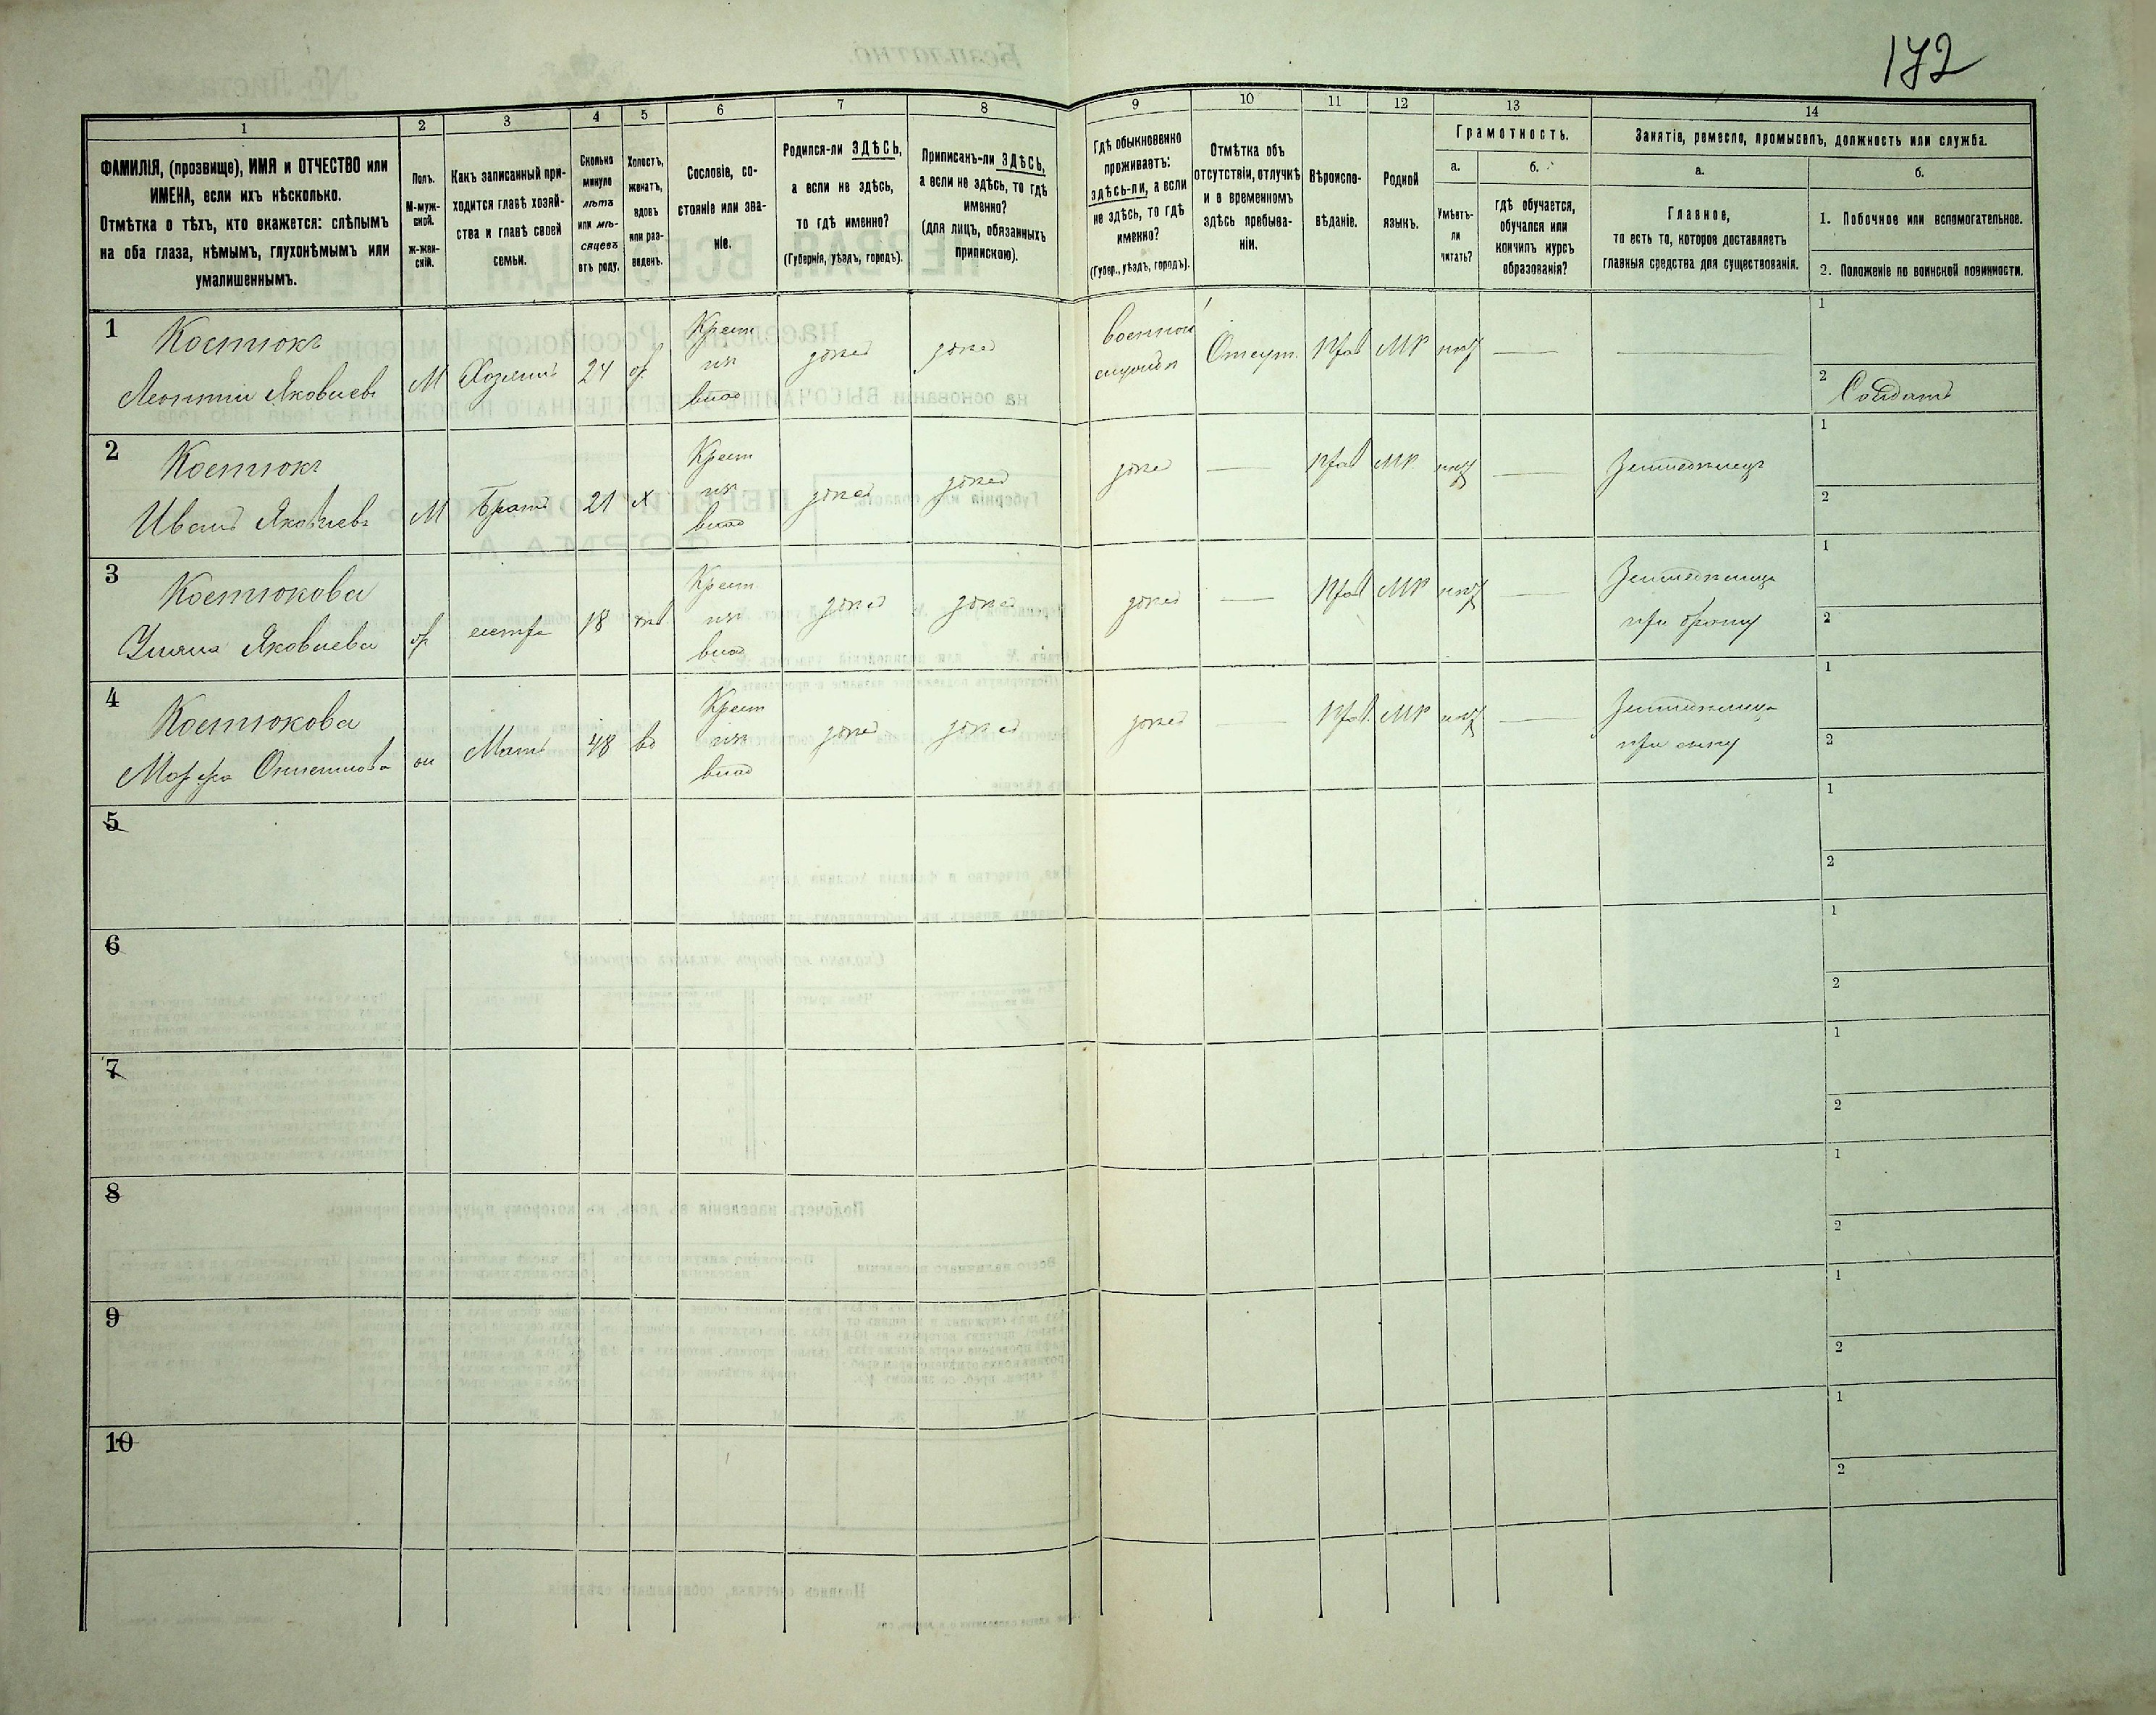 172
1 2 3 4 5 6 7 8 9 10 11 12 13 14
ФАМИЛІЯ, (прозвище), ИМЯ и ОТЧЕСТВО или
ИМЕНА, если ихъ нѣсколько.
Отмѣтка о тѣхъ, кто окажется: слѣпымъ
на оба глаза, нѣмымъ, глухонѣмымъ или
умалишеннымъ.
Полъ.
М-муж-
ской.
ж-жен-
скій.
Какъ записанный при-
ходится главѣ хозяй-
ства и главѣ своей
семьи.
Сколько
минуло
лѣтъ
или мѣ-
сяцевъ
отъ роду.
Холостъ,
женатъ,
вдовъ
или раз-
веденъ.
Сословіе, со-
стояніе или зва-
ніе.
Родился-ли ЗДѢСЬ,
а если не здѣсь,
то гдѣ именно?
(Губернія, уѣздъ, городъ).
Приписанъ-ли ЗДѢСЬ,
а если не здѣсь, то гдѣ
именно?
(для лицъ, обязанныхъ
припискою).
Гдѣ обыкновенно
проживаетъ:
здѣсь-ли, а если
не здѣсь, то гдѣ
именно?
(Губер., уѣздъ, городъ).
Отмѣтка объ
отсутствіи, отлучкѣ
и о временномъ
здѣсь пребыва-
ніи.
Вѣроиспо-
вѣданіе.
Родной
языкъ.
Грамотность.
а.
Умѣетъ-
ли
читать?
б.
гдѣ обучается,
обучался или
кончилъ курсъ
образованія?
Занятія, ремесло, промыселъ, должность или служба.
а.
Главное,
то есть то, которое доставляетъ
главныя средства для существованія.
б.
1. Побочное или вспомогательное.
2. Положеніе по воинской повинности.
1 Костюкъ
Леонтій Яковлевъ
М Хозяинъ 24
Крест
влад
Отсут. Прав МР
1
2 Солдатъ
2 Костюкъ
Иванъ Яковлевъ
М Братъ 21 х
Крест
влад
Прав МР
Земледѣлецъ
1
2
3 Костюкова
Уляна Яковлева
сестра 18
Крест
влад
Прав МР
Земледѣлица
при брату
1
2
4 Костюкова
Мать 48 вд
Крест
влад
Прав. МР
Земледѣлица
при сыну
1
2
5
1
2
6
1
2
7
1
2
8
1
2
9
1
2
10
1
2